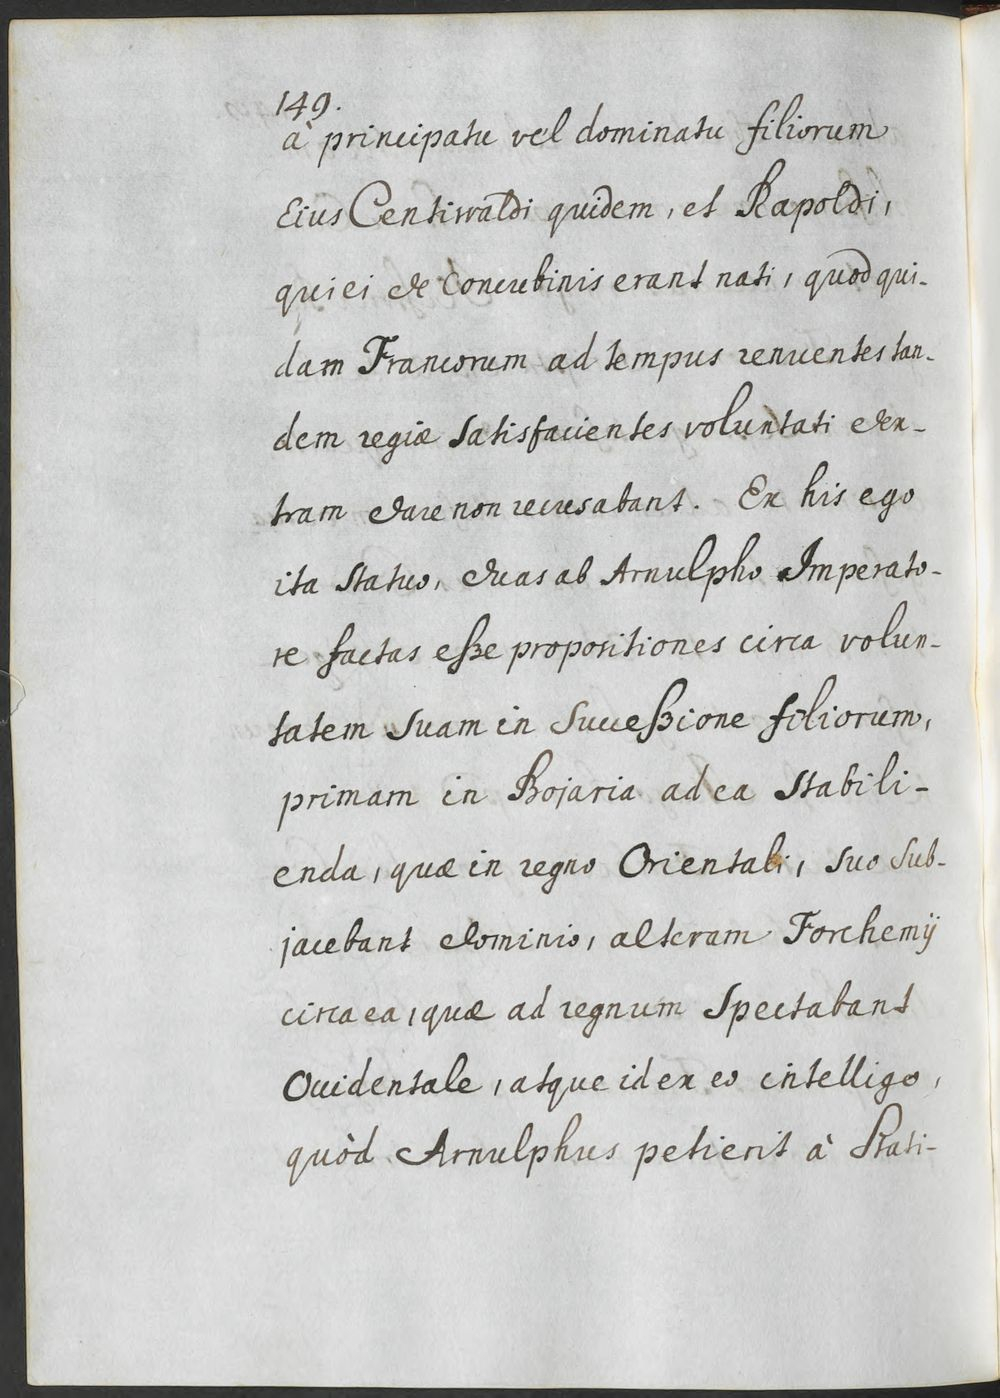 149.
à principatu vel dominatu filiorum
Eius Centiwaldi quidem, et Rapoldi,
qui ei de Concubinis erant nati, quod qui-
dam Francorum ad tempus renuentes tan-
dem regiæ Satisfacientes voluntati dex-
tram dare non recusabant. Ex his ego
ita Statuo, duas ab Arnulpho Imperato-
re factas eße propositiones circa volun-
tatem Suam in Succeßione filiorum,
primam in Bojaria ad ea Stabili-
enda, quæ in regno Orientali, Suo Sub-
jacebant dominio, alteram Forchemij
circa ea, quæ ad regnum Spectabant
Occidentale, atque id ex eo intelligo,
quòd Arnulphus petierit à Stati-